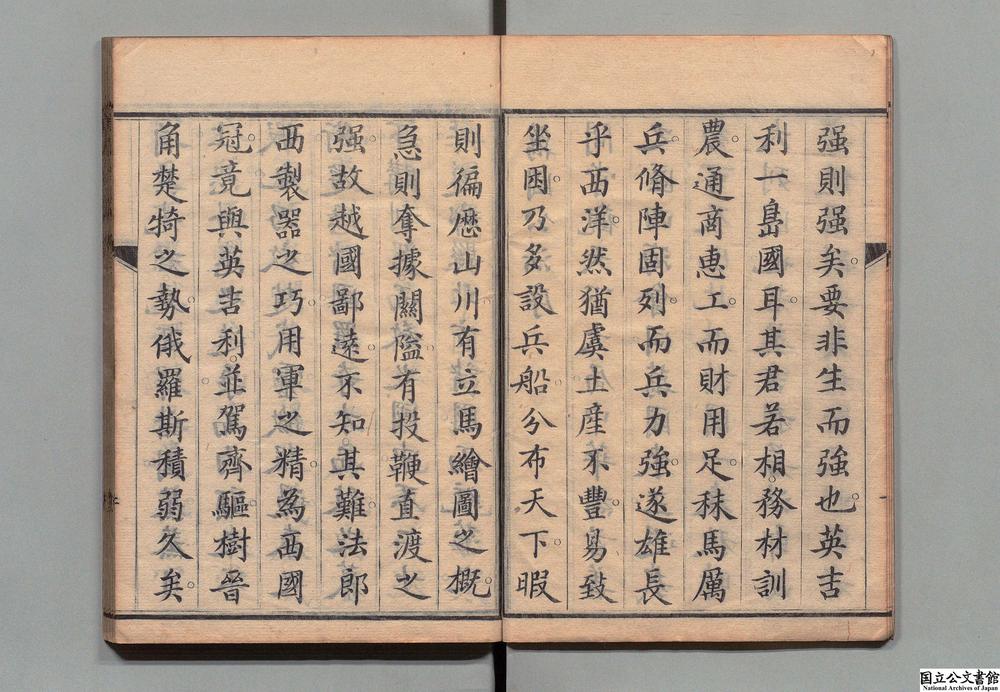 强則强矣。要非生而強也。英吉
利一島國耳。其君若相。務材訓
農。通商惠工。而財用足。秣馬厲
兵。脩陣固列。而兵力強。遂雄長
乎西洋。然猶虞土産不豐。易致
坐困。乃多設兵船。分布天下。暇
則徧歷山川。有立馬繪圖之概。
急則奪據關隘。有投鞭直渡之
强。故越國鄙遠。不知其難。法郎
西製器之巧。用軍之精。為西國
冠。竟與英吉利。並駕齊驅。樹晉
角楚犄之勢。俄羅斯積弱久矣。
国立公文書館
National Archives of Japan